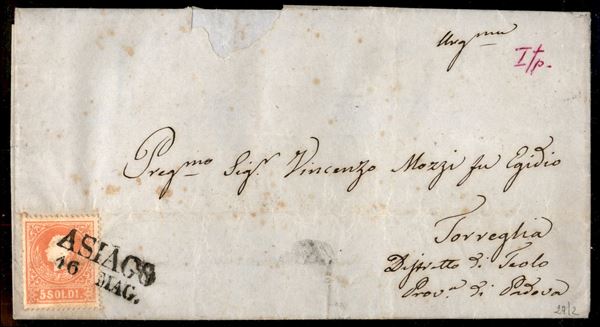 Urg^{ma}
I/p.
Preg^{mo} Sig^r Vincenzo Mozzi fu Egidio
Torreglia
Distretto di Teolo
Prov^a di Padova
ASIAGO
16 MAG.
5 SOLDI
29/2